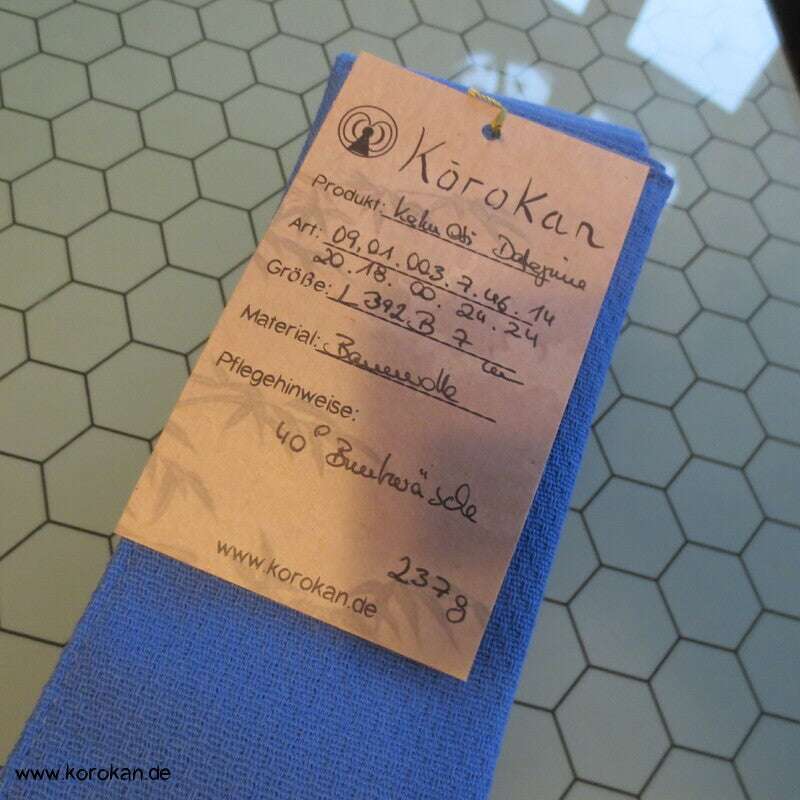 Kōrokan
Produkt: Kaku Obi
Art: 09.01.003.7.46.14
20.18.00.24.24
Größe: L 392 B 7 cm
Material: Baumwolle
Pflegehinweise:
40° Buntwäsche
237g
www.korokan.de
www.korokan.de